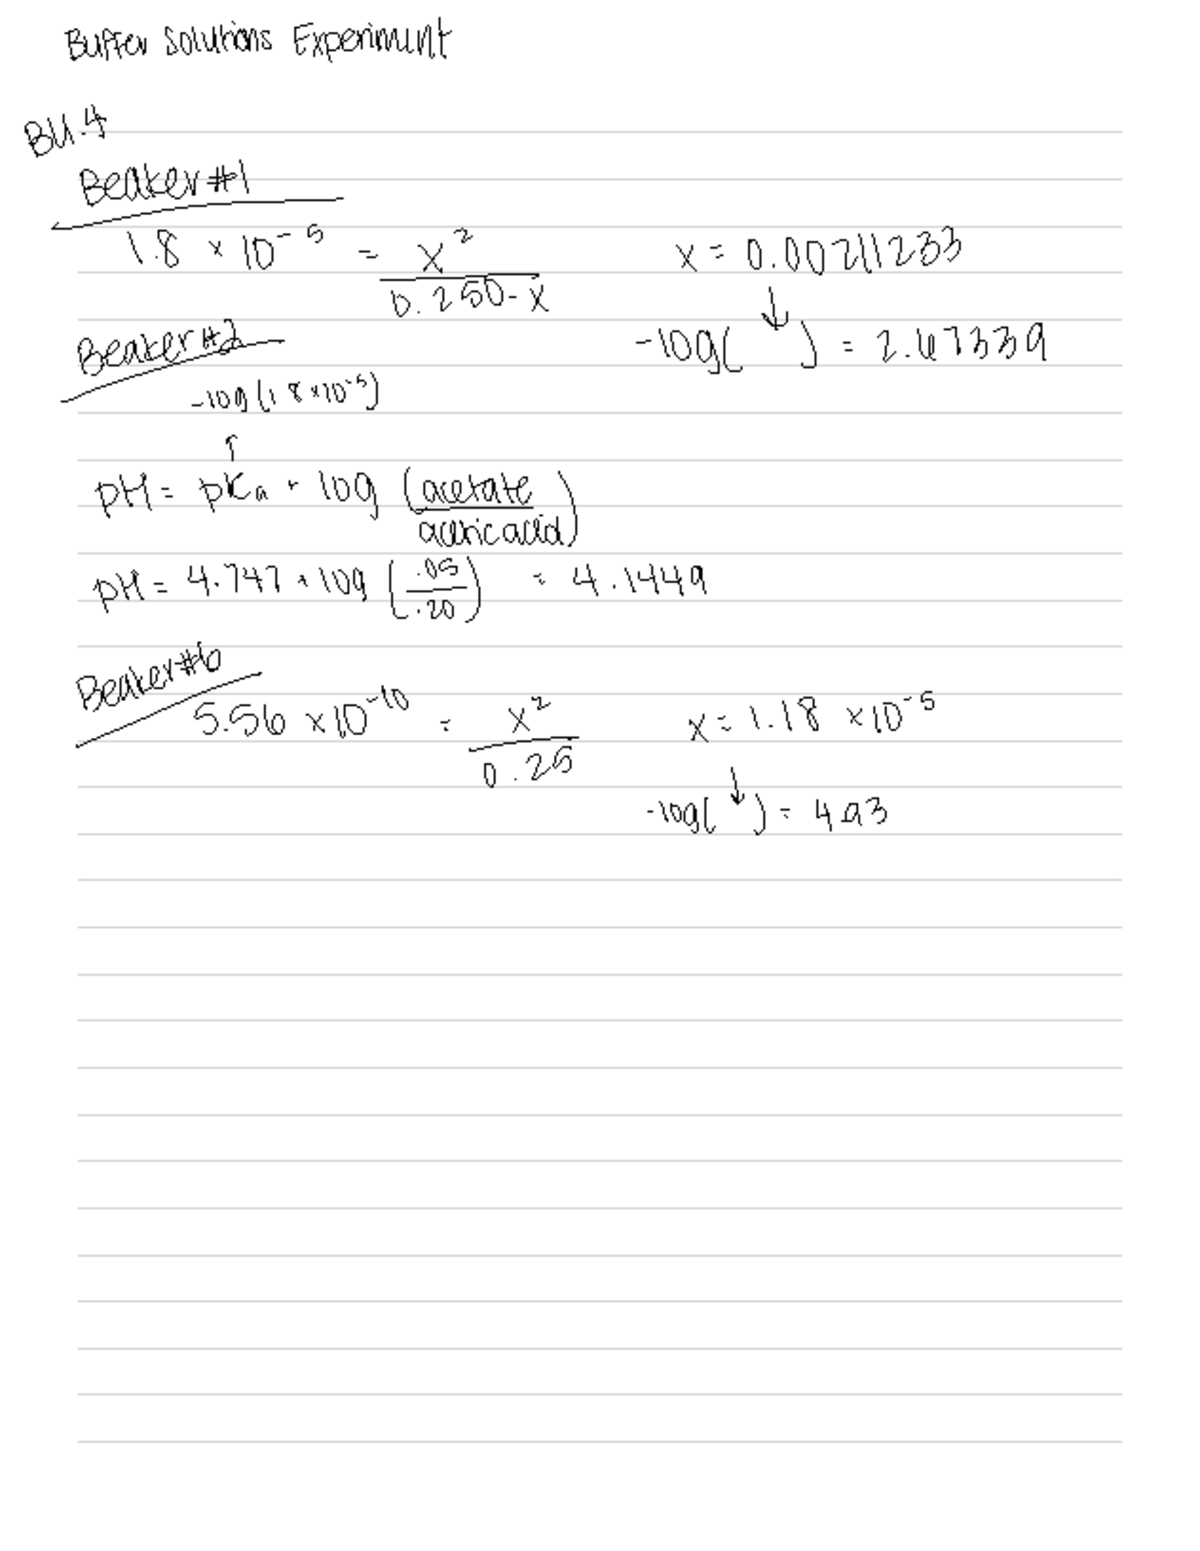 Buffer Solutions Experiment
BU.4
Beaker #1
1.8 × 10⁻⁵ = x² / 0.250-x
x = 0.00211233
↓
-log( ) = 2.67339
Beaker #2
-log(1.8×10⁻⁵)
↑
pH = pKa + log (acetate / acetic acid)
pH = 4.747 + log (.05 / .20) = 4.1449
Beaker #6
5.56 × 10⁻¹⁰ = x² / 0.25
x = 1.18 × 10⁻⁵
↓
-log( ) = 4.93